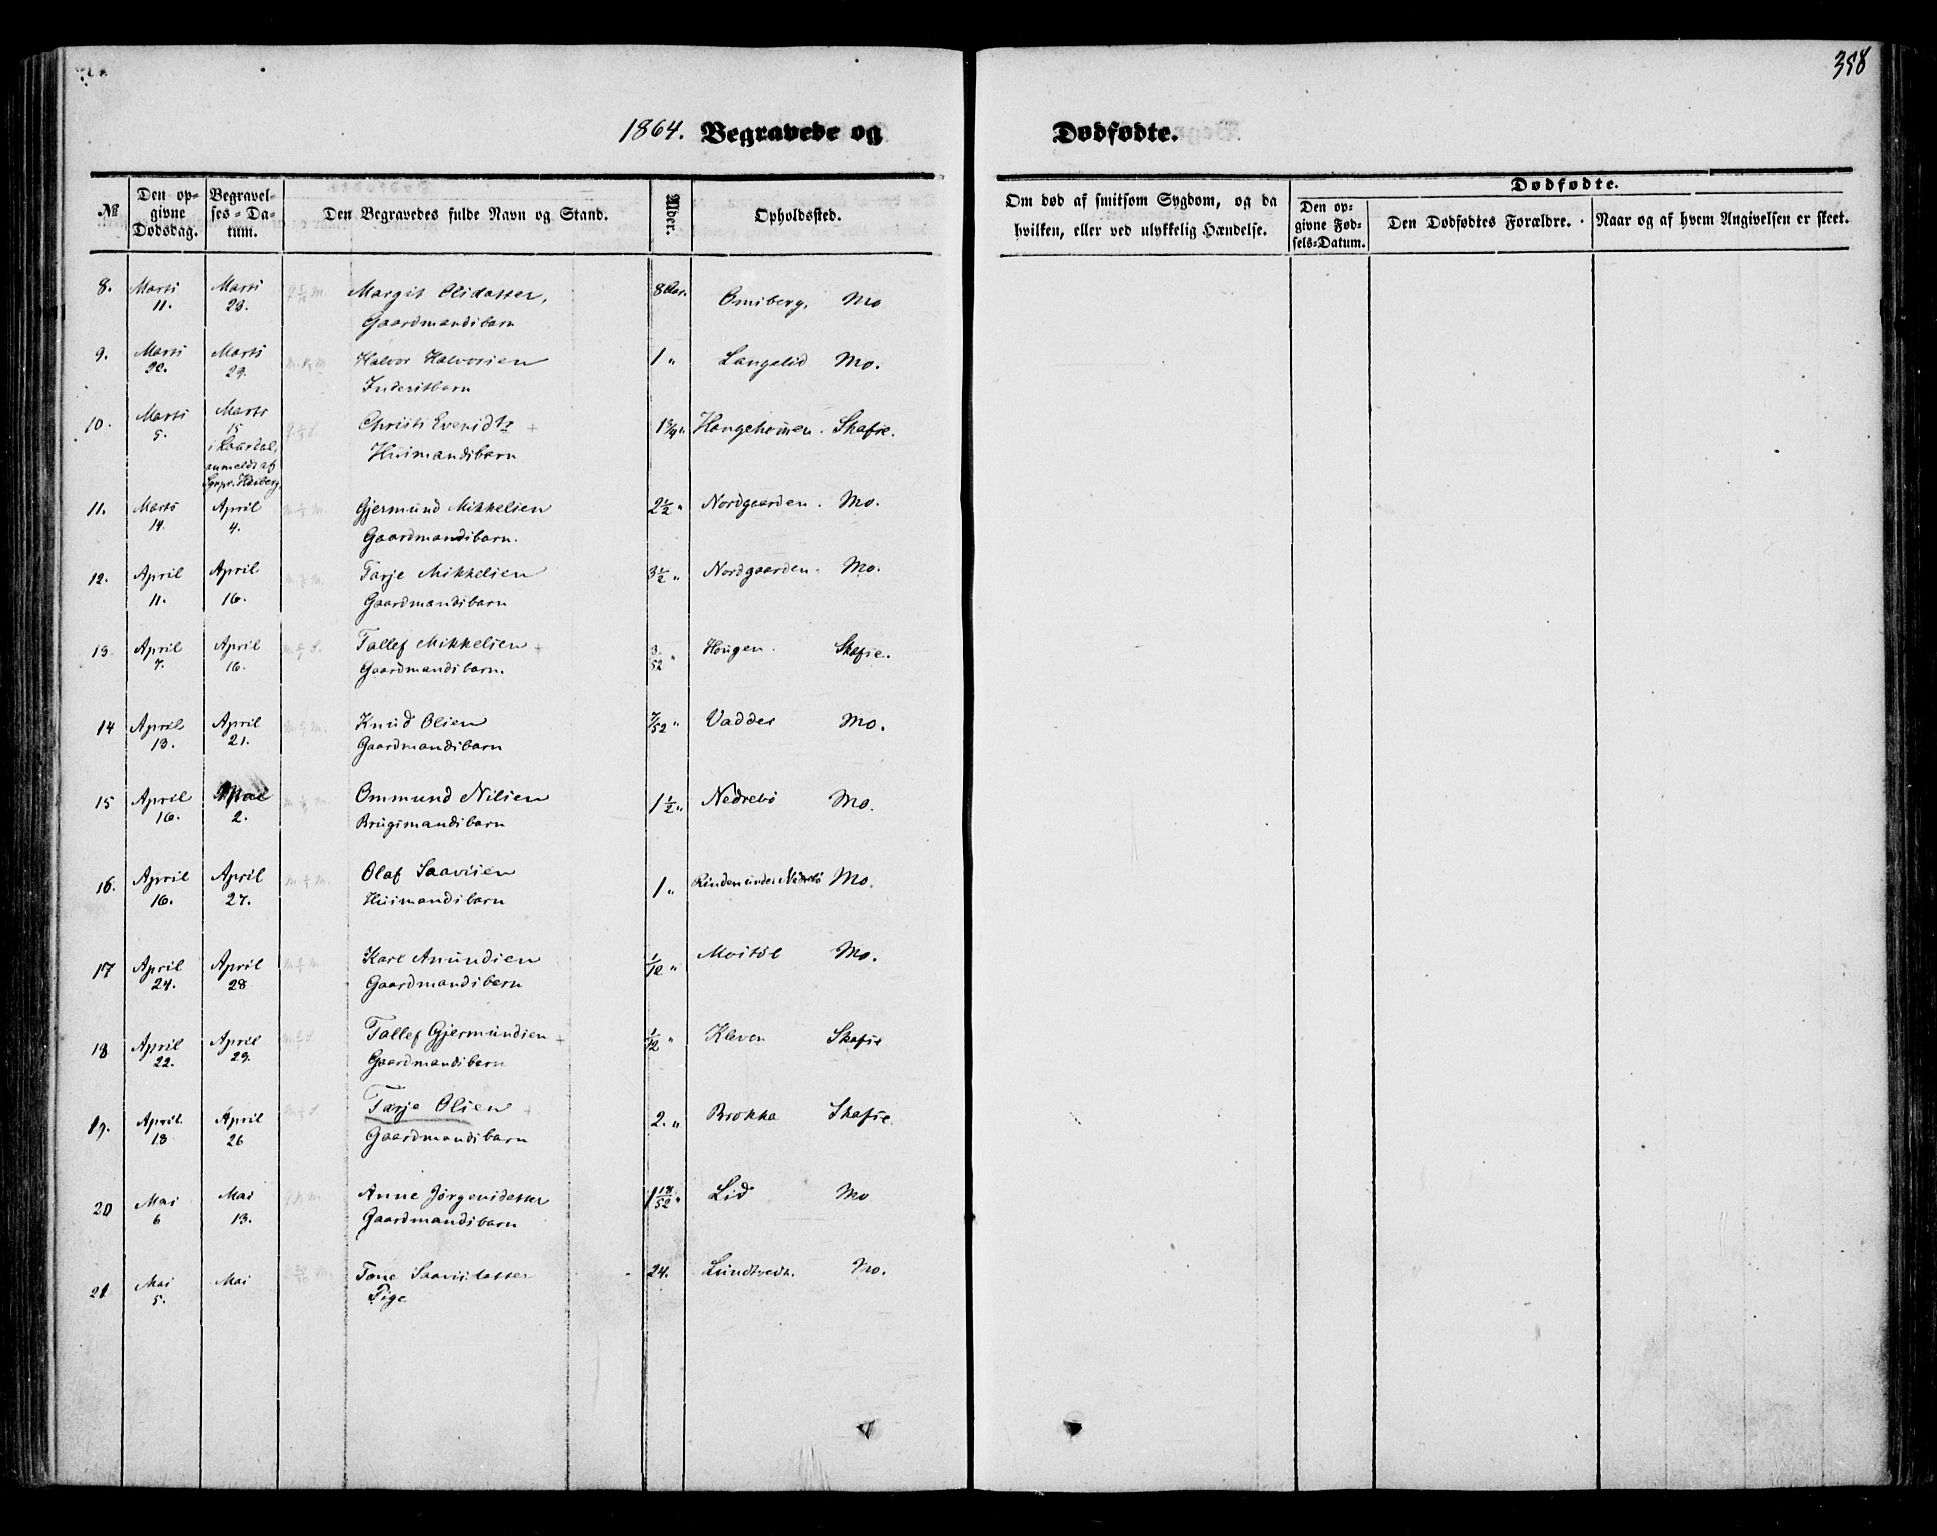 358
1864. Begravede og Dødfødte.
№ Den opgivne Dødsdag. Begravelses-Datum. Den Begravedes fulde Navn og Stand. Alder. Opholdssted. Om død af smitsom Sygdom, og da hvilken, eller ved ulykkelig Hændelse. Dødfødte. Den opgivne Fødsels-Datum. Den Dødfødtes Forældre. Naar og af hvem Angivelsen er skeet.
8. Marts 11. Marts 23. Margit Olsdatter, 8 Aar. Omiberg, Mo
Gaardmandsbarn
9. Marts 22. Marts 29. Halvor Halvorsen 1 " Langelid Mo.
Inderstbarn
10. Marts 5. Marts 15 Christi Evensdtr + 1¾ " Skafse.
i Laardal, anmeldt af
Husmandsbarn
11. Marts 14. April 4. Gjermund Mikkelsen 2½ " Nordgaarden. Mo.
Gaardmandsbarn.
12. April 11. April 16. Tarje Mikkelsen 3½ " Nordgaarden. Mo.
Gaardmandsbarn
13. April 7. April 16. Tallef Mikkelsen + 3/52 " Hougen. Skafse.
Gaardmandsbarn.
14 April 13. April 21. Knud Olsen 7/52 " Vaddes Mo.
Gaardmandsbarn
15 April 16. Mai 2. Ommund Nilsen 1½ " Nedrebö Mo.
Brugsmandsbarn
16. April 16. April 27. Olaf Saavesen 1 " Rinden under Nedrebö Mo.
Husmandsbarn
17 April 24. April 28 Karl Amundsen 1/12 " Moistöl Mo.
Gaardmandsbarn
18 April 22. April 29. Tallef Gjermundsen + 1/12 " Kleven Skafse
Gaardmandsbarn
19. April 13 April 26 Tarje Olsen + 2. " Brokka Skafse.
Gaardmandsbarn
20 Mai 6 Mai 13. Anne Jørgensdatter 1 18/52 " Lid Mo
Gaardmandsbarn
21 Mai 5. Mai Tone Saavesdatter 24. Lundtvedt. Mo.
Pige